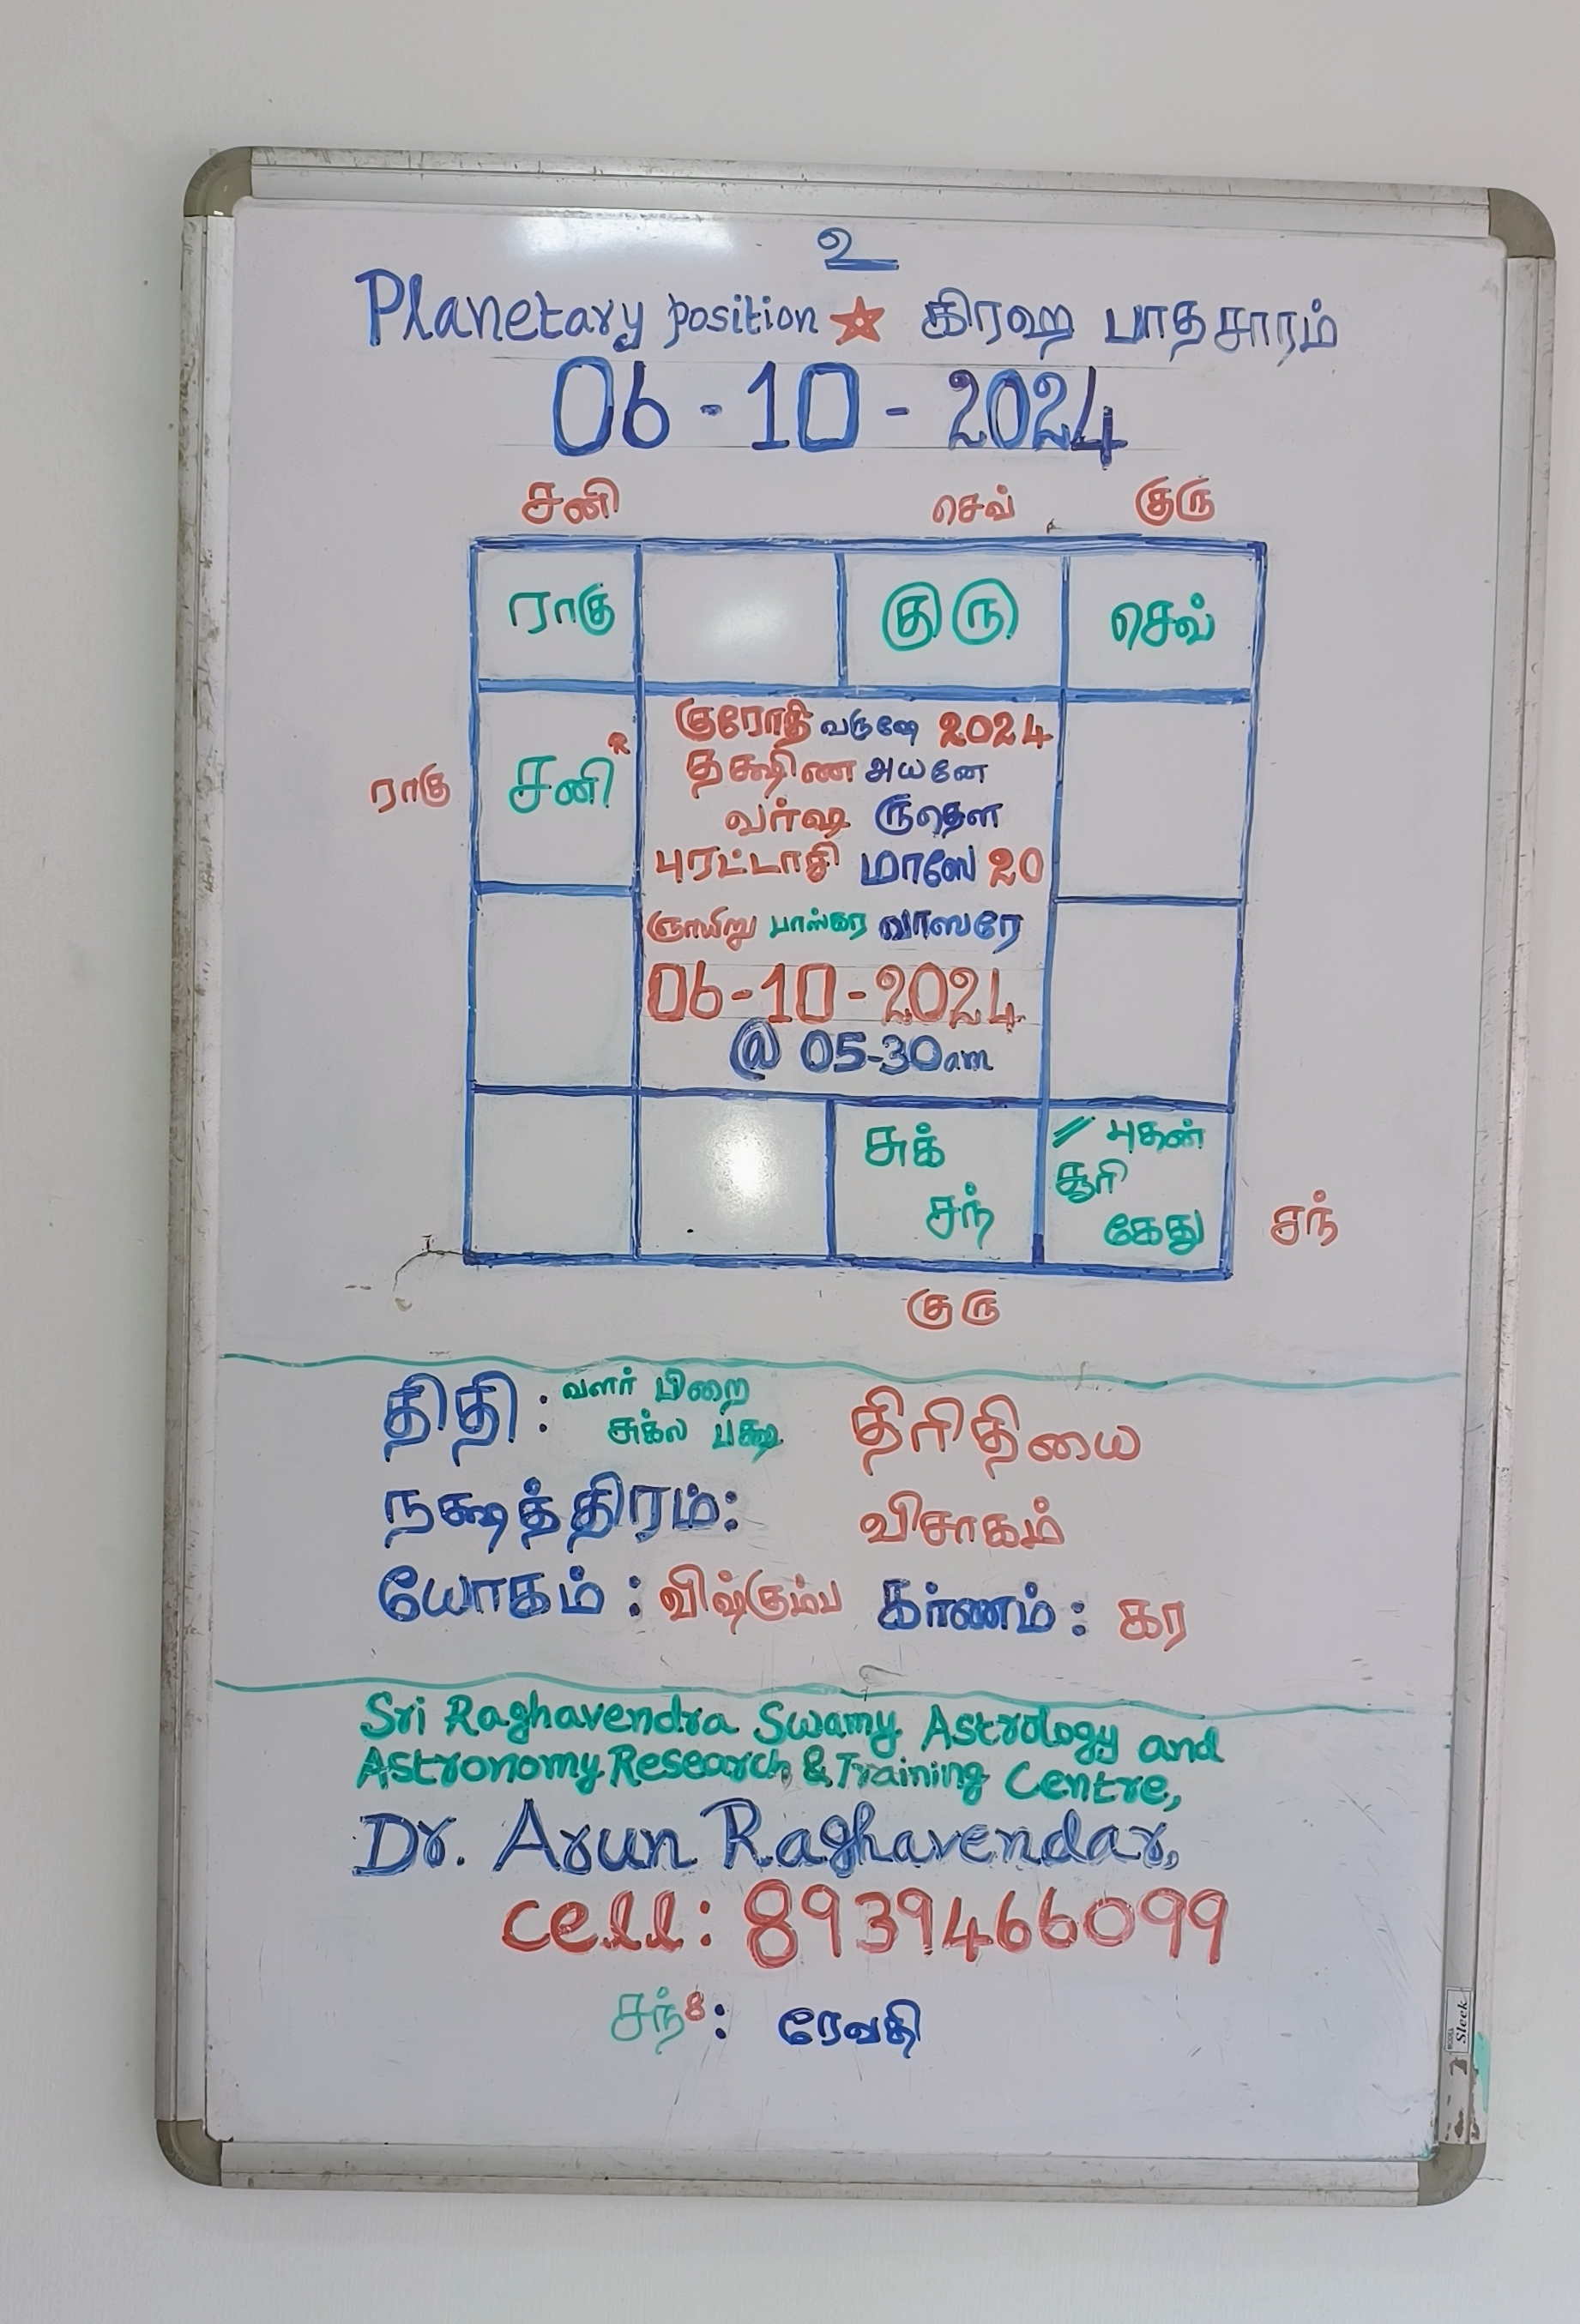 உ
Planetary position ★ கிரஹ பாதசாரம்
06-10-2024
சனி செவ் குரு
ராகு குரு செவ்
ராகு சனி R
குரோதி வருஷே 2024
தக்ஷிண அயனே
வர்ஷ ருதௌ
புரட்டாசி மாஸே 20
ஞாயிறு பாஸ்கர வாஸரே
06-10-2024
@ 05-30am
சுக் // புதன்
சூரி
சந் கேது சந்
குரு
திதி : வளர் பிறை
சுக்ல பக்ஷ திரிதியை
நக்ஷத்திரம்: விசாகம்
யோகம் : விஷ்கும்ப கர்ணம் : கர
Sri Raghavendra Swamy Astrology and
Astronomy Research & Training Centre,
Dr. Arun Raghavendar,
cell: 8939466099
சந் 8 : ரேவதி
Sleek